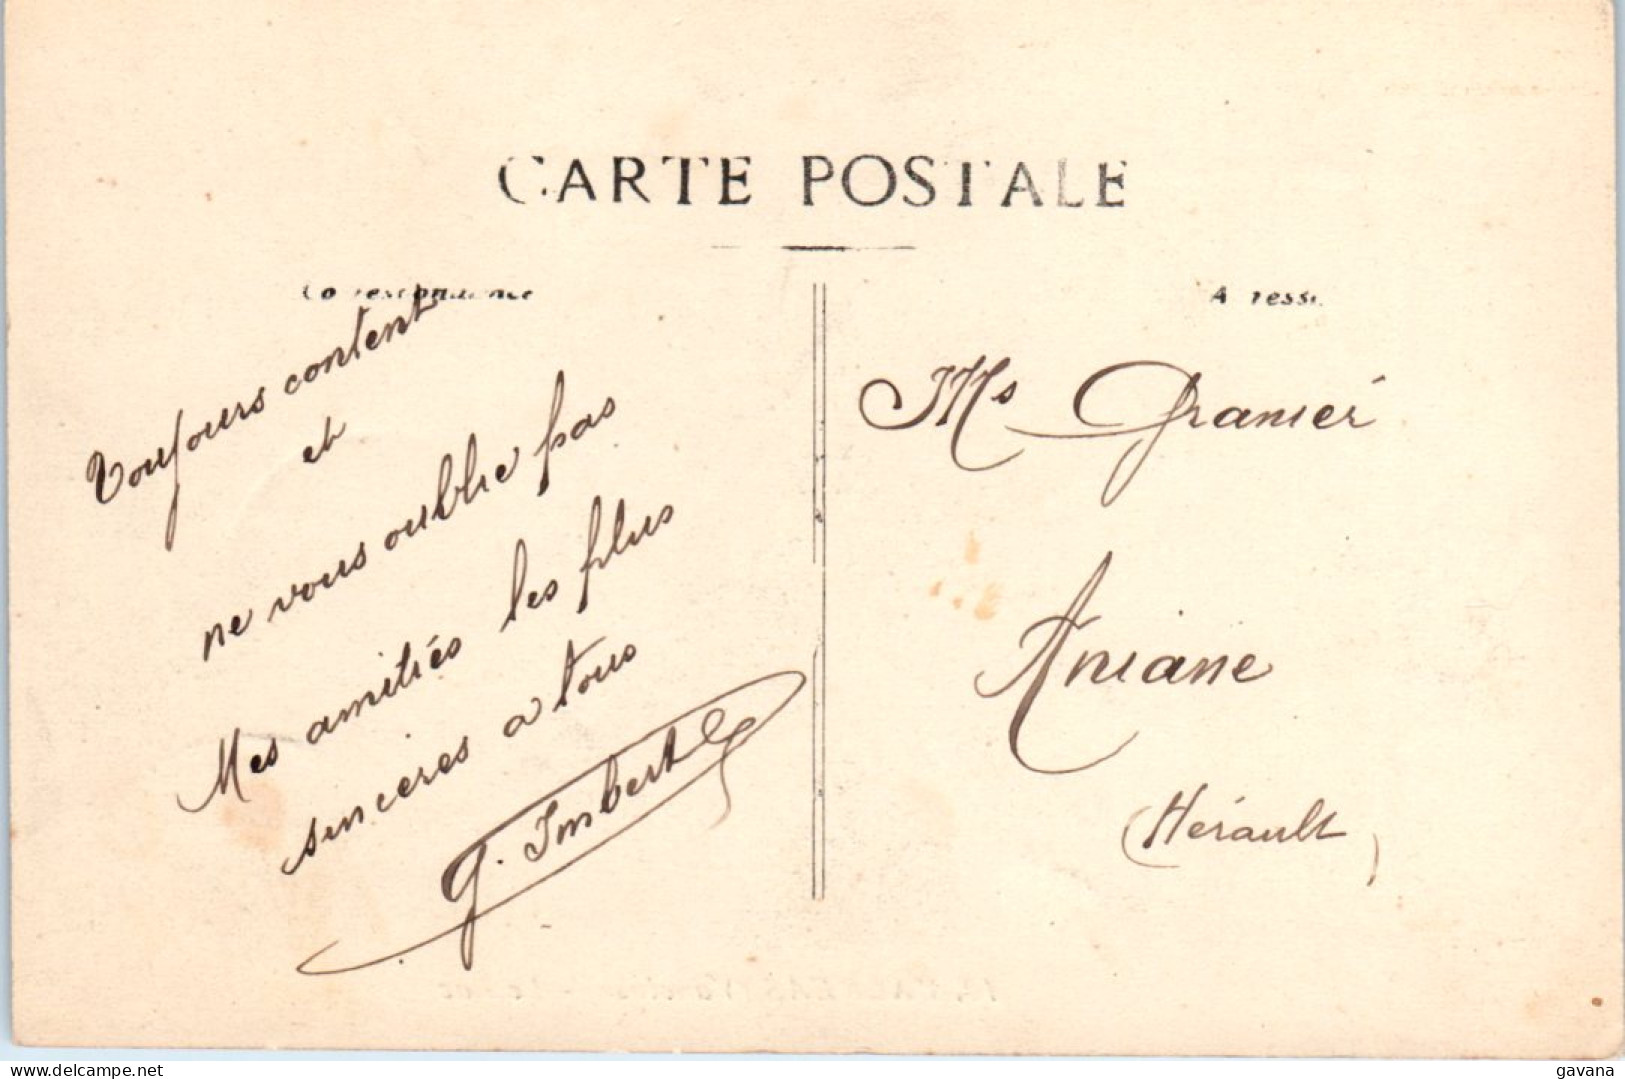 CARTE POSTALE
Correspondance
Toujours content
et
ne vous oublie pas
Mes amitiés les plus
sincères a tous
G. Imbert
Adresse
Ms Granier
Aniane
(Hérault)
delcampe.net
gavana